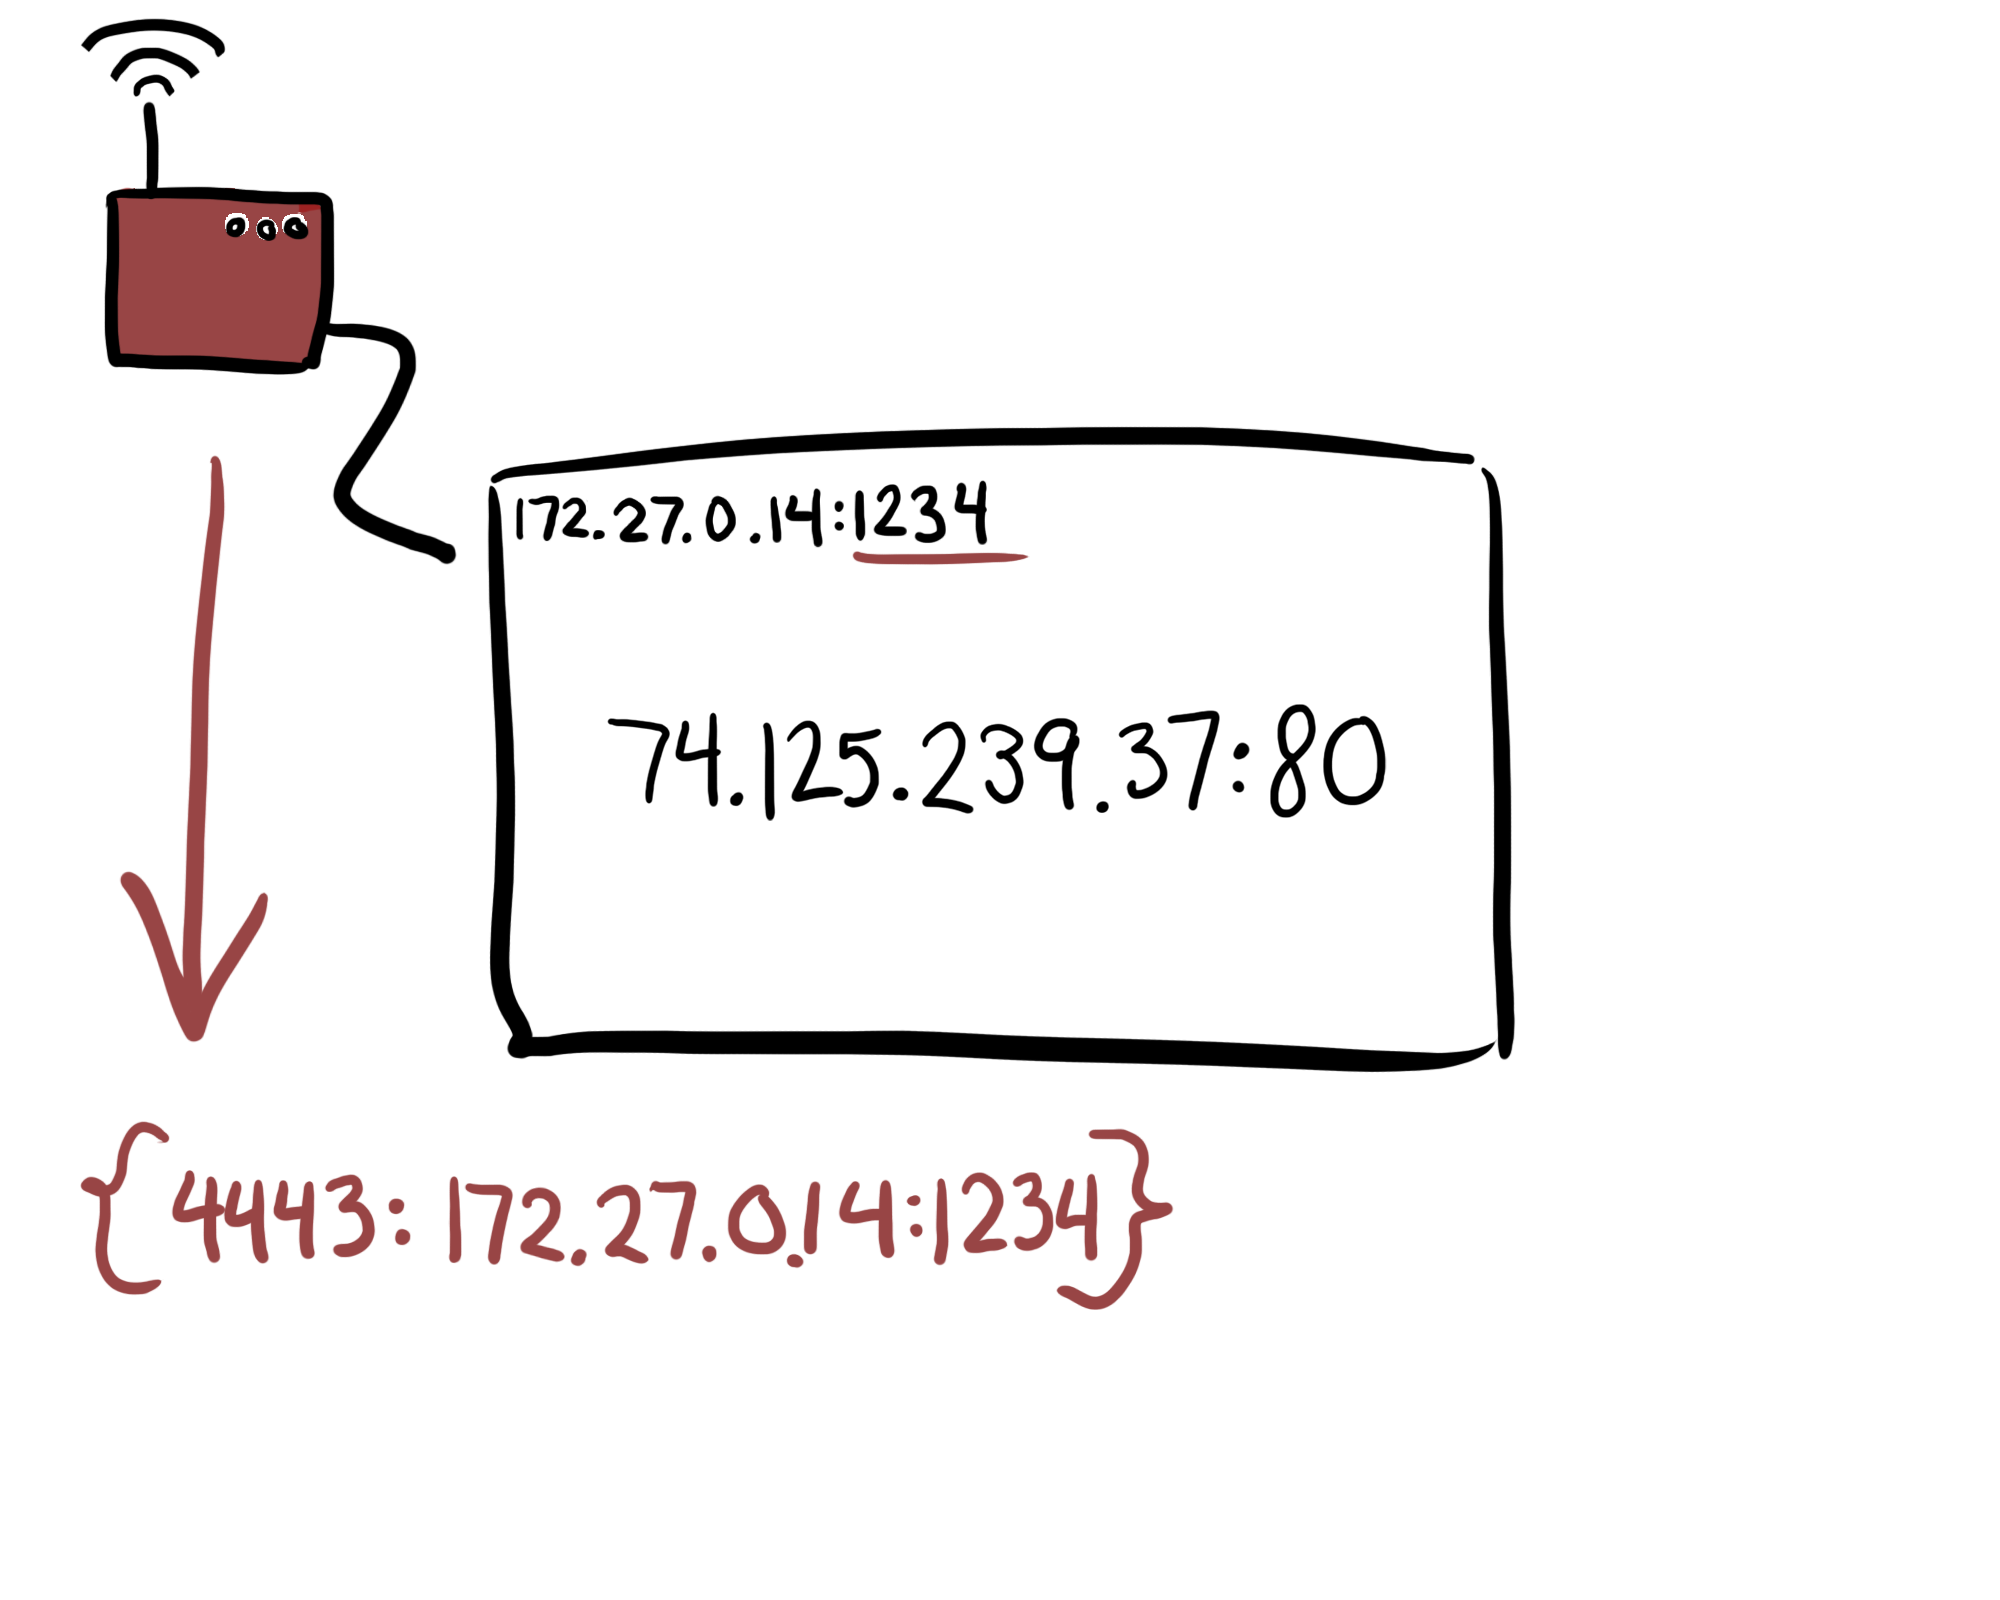 172.27.0.14:1234
74.125.239.37:80
{4443: 172.27.0.14:1234}